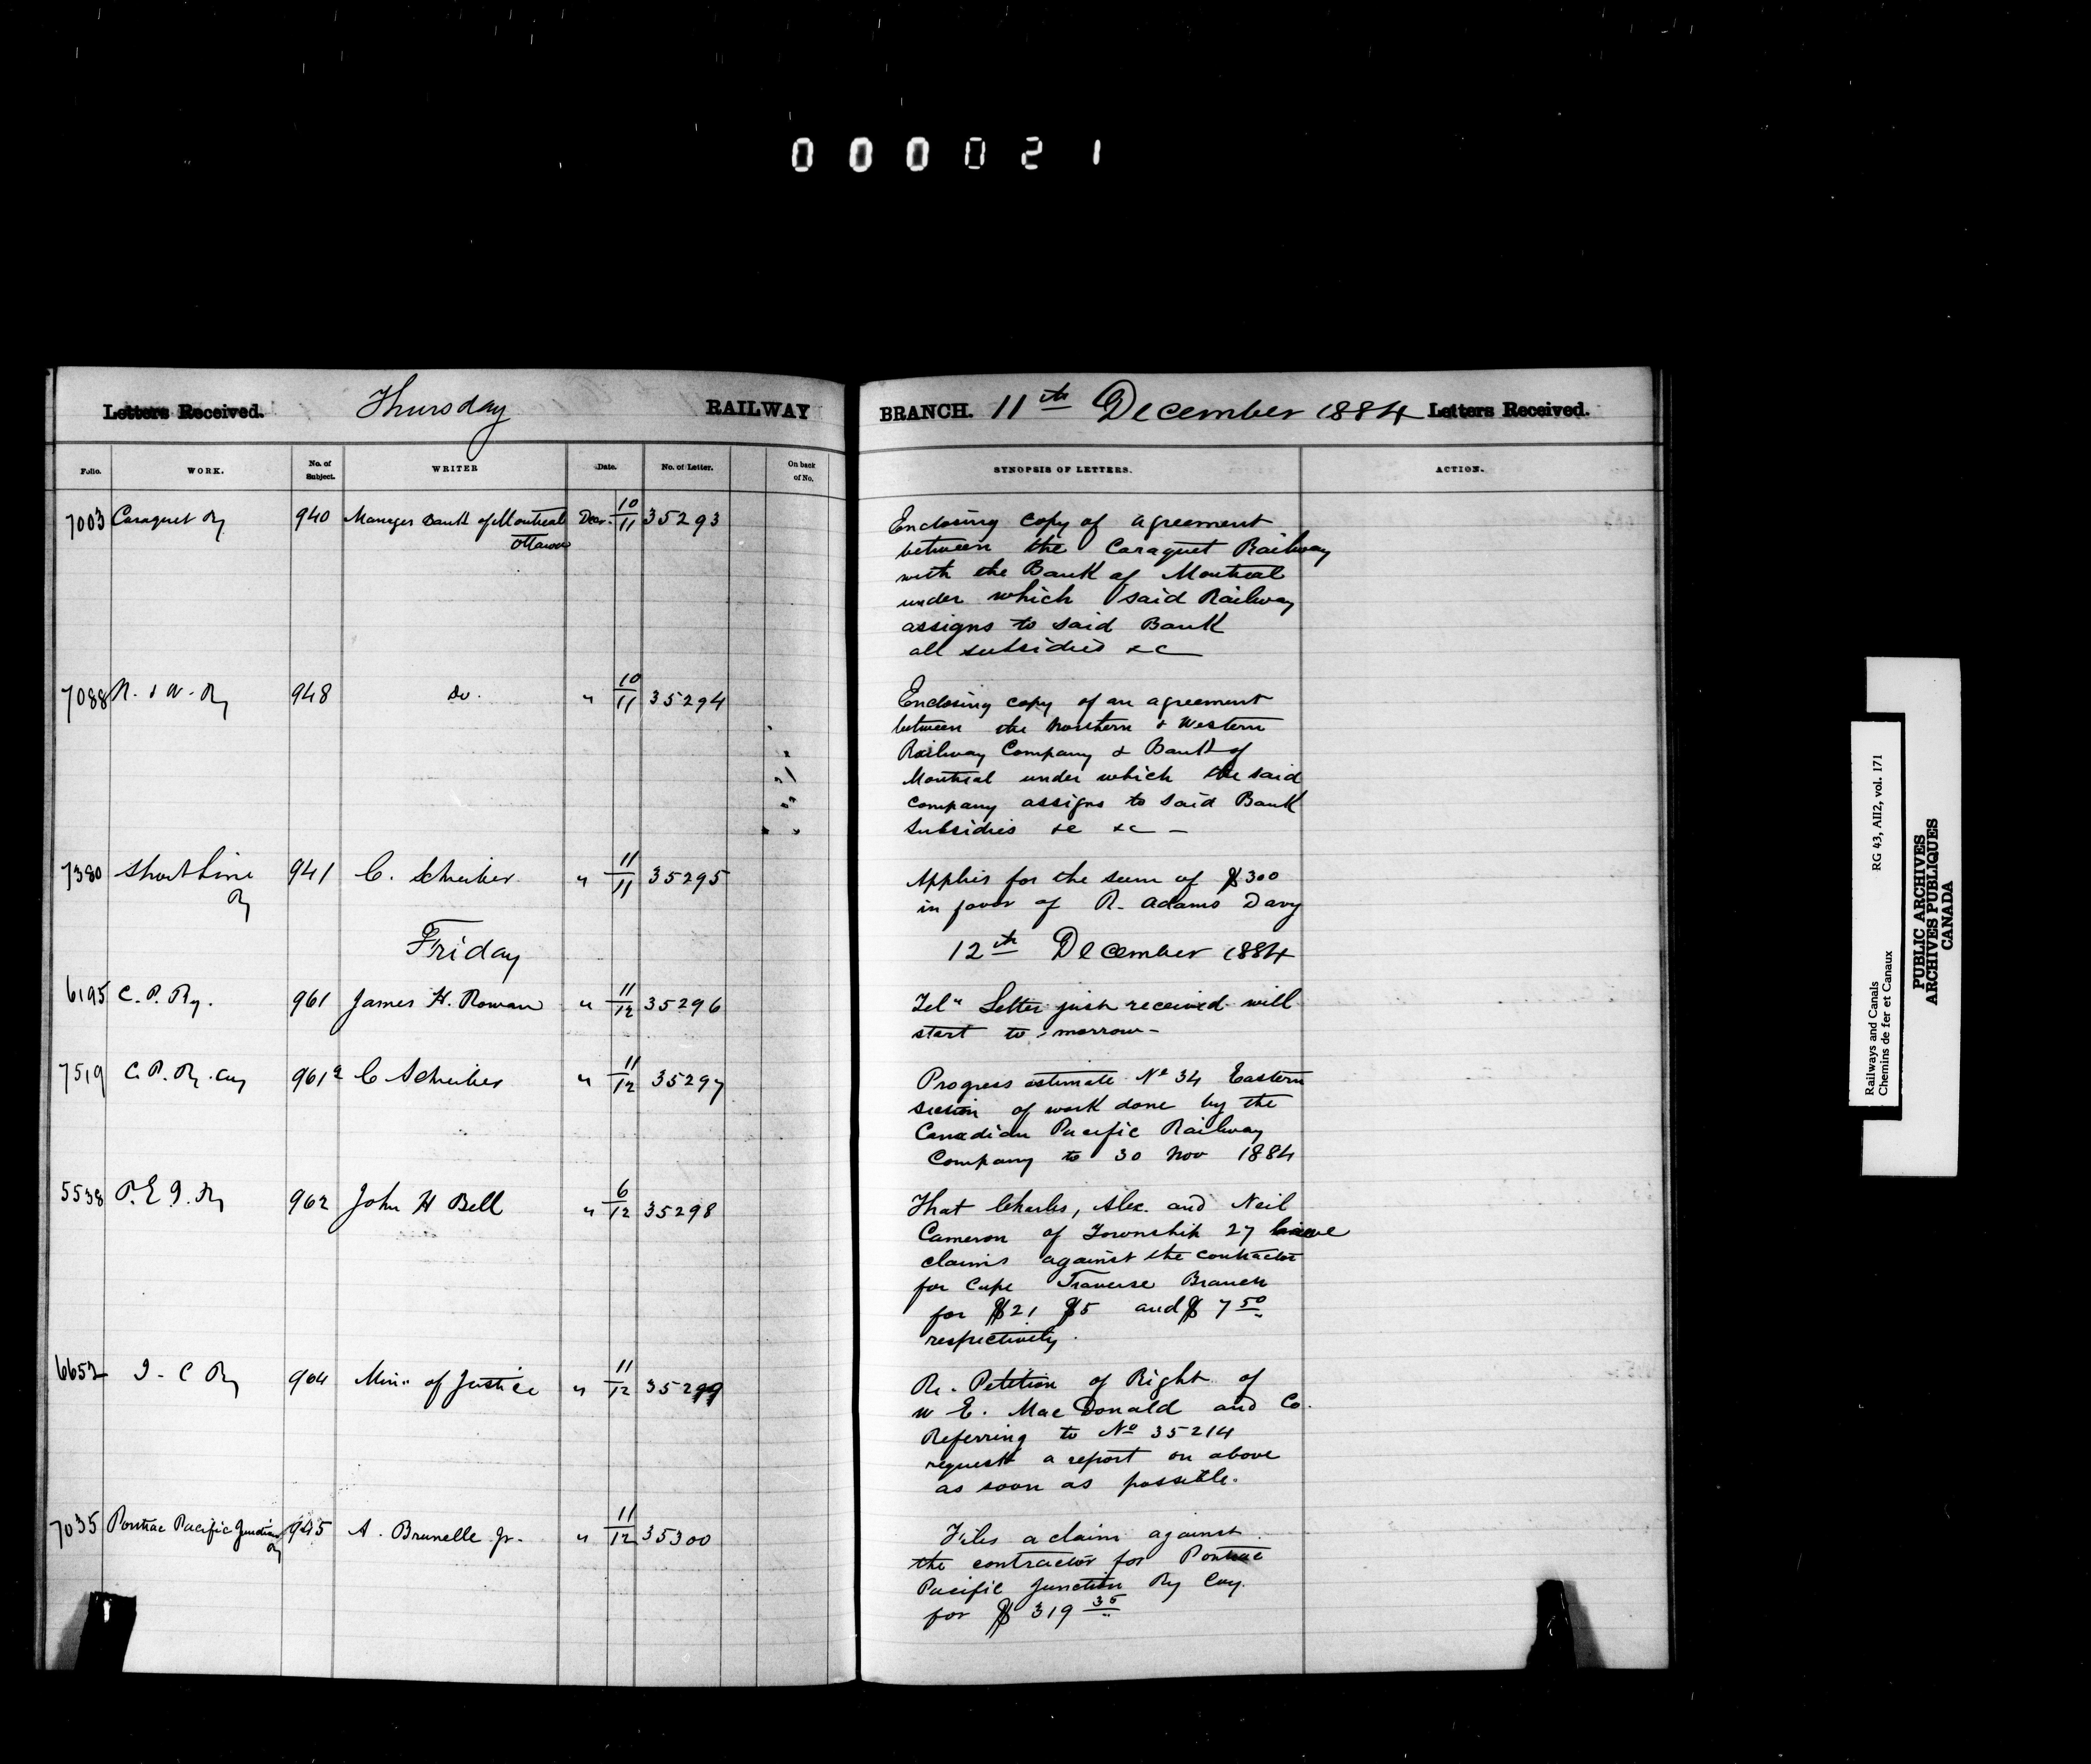 000021
Letters Received. Thursday RAILWAY BRANCH. 11th December 1884 Letters Received.
Folio. WORK. No. of Subject. WRITER Date. No. of Letter. On back of No. SYNOPSIS OF LETTERS. ACTION.
7003 Caraquet Ry 940 Manager Bank of Montreal Ottawa Decr. 10/11 35293
Enclosing copy of agreement
between the Caraquet Railway
with the Bank of Montreal
under which said Railway
assigns to said Bank
all subsidies &c
7088 N. & W. Ry 948 do. " 10/11 35294
Enclosing copy of an agreement
between the Northern & Western
Railway Company & Bank of
Montreal under which the said
Company assigns to said Bank
Subsidies &c &c —
7380 Short Line Ry 941 C. Schreiber " 11/11 35295
Applies for the sum of $300
in favor of R. Adams Davy
Friday 12th December 1884
6195 C. P. Ry. 961 James H. Rowan " 11/12 35296
Tel" Letter just received will
start to-morrow—
7519 C. P. Ry. Coy 961a C Schreiber " 11/12 35297
Progress estimate No 34 Eastern
section of work done by the
Canadian Pacific Railway
Company to 30 Nov 1884
5538 P. E I. Ry 962 John H Bell " 6/12 35298
That Charles, Alex. and Neil
Cameron of Township 27 have
claims against the contractor
for Cape Traverse Branch
for $21 $5 and $7 50
respectively.
6652 I- C Ry 904 Min: of Justice " 11/12 35299
Re. Petition of Right of
W E. MacDonald and Co.
Referring to No 35214
request a report on above
as soon as possible.
7035 Pontiac Pacific Junction Ry 945 A. Brunelle Jr. " 11/12 35300
Files a claim against
the contractor for Pontiac
Pacific Junction Ry Coy.
for $319 35
Railways and Canals RG 43, AII2, vol. 171
Chemins de fer et Canaux
PUBLIC ARCHIVES
ARCHIVES PUBLIQUES
CANADA